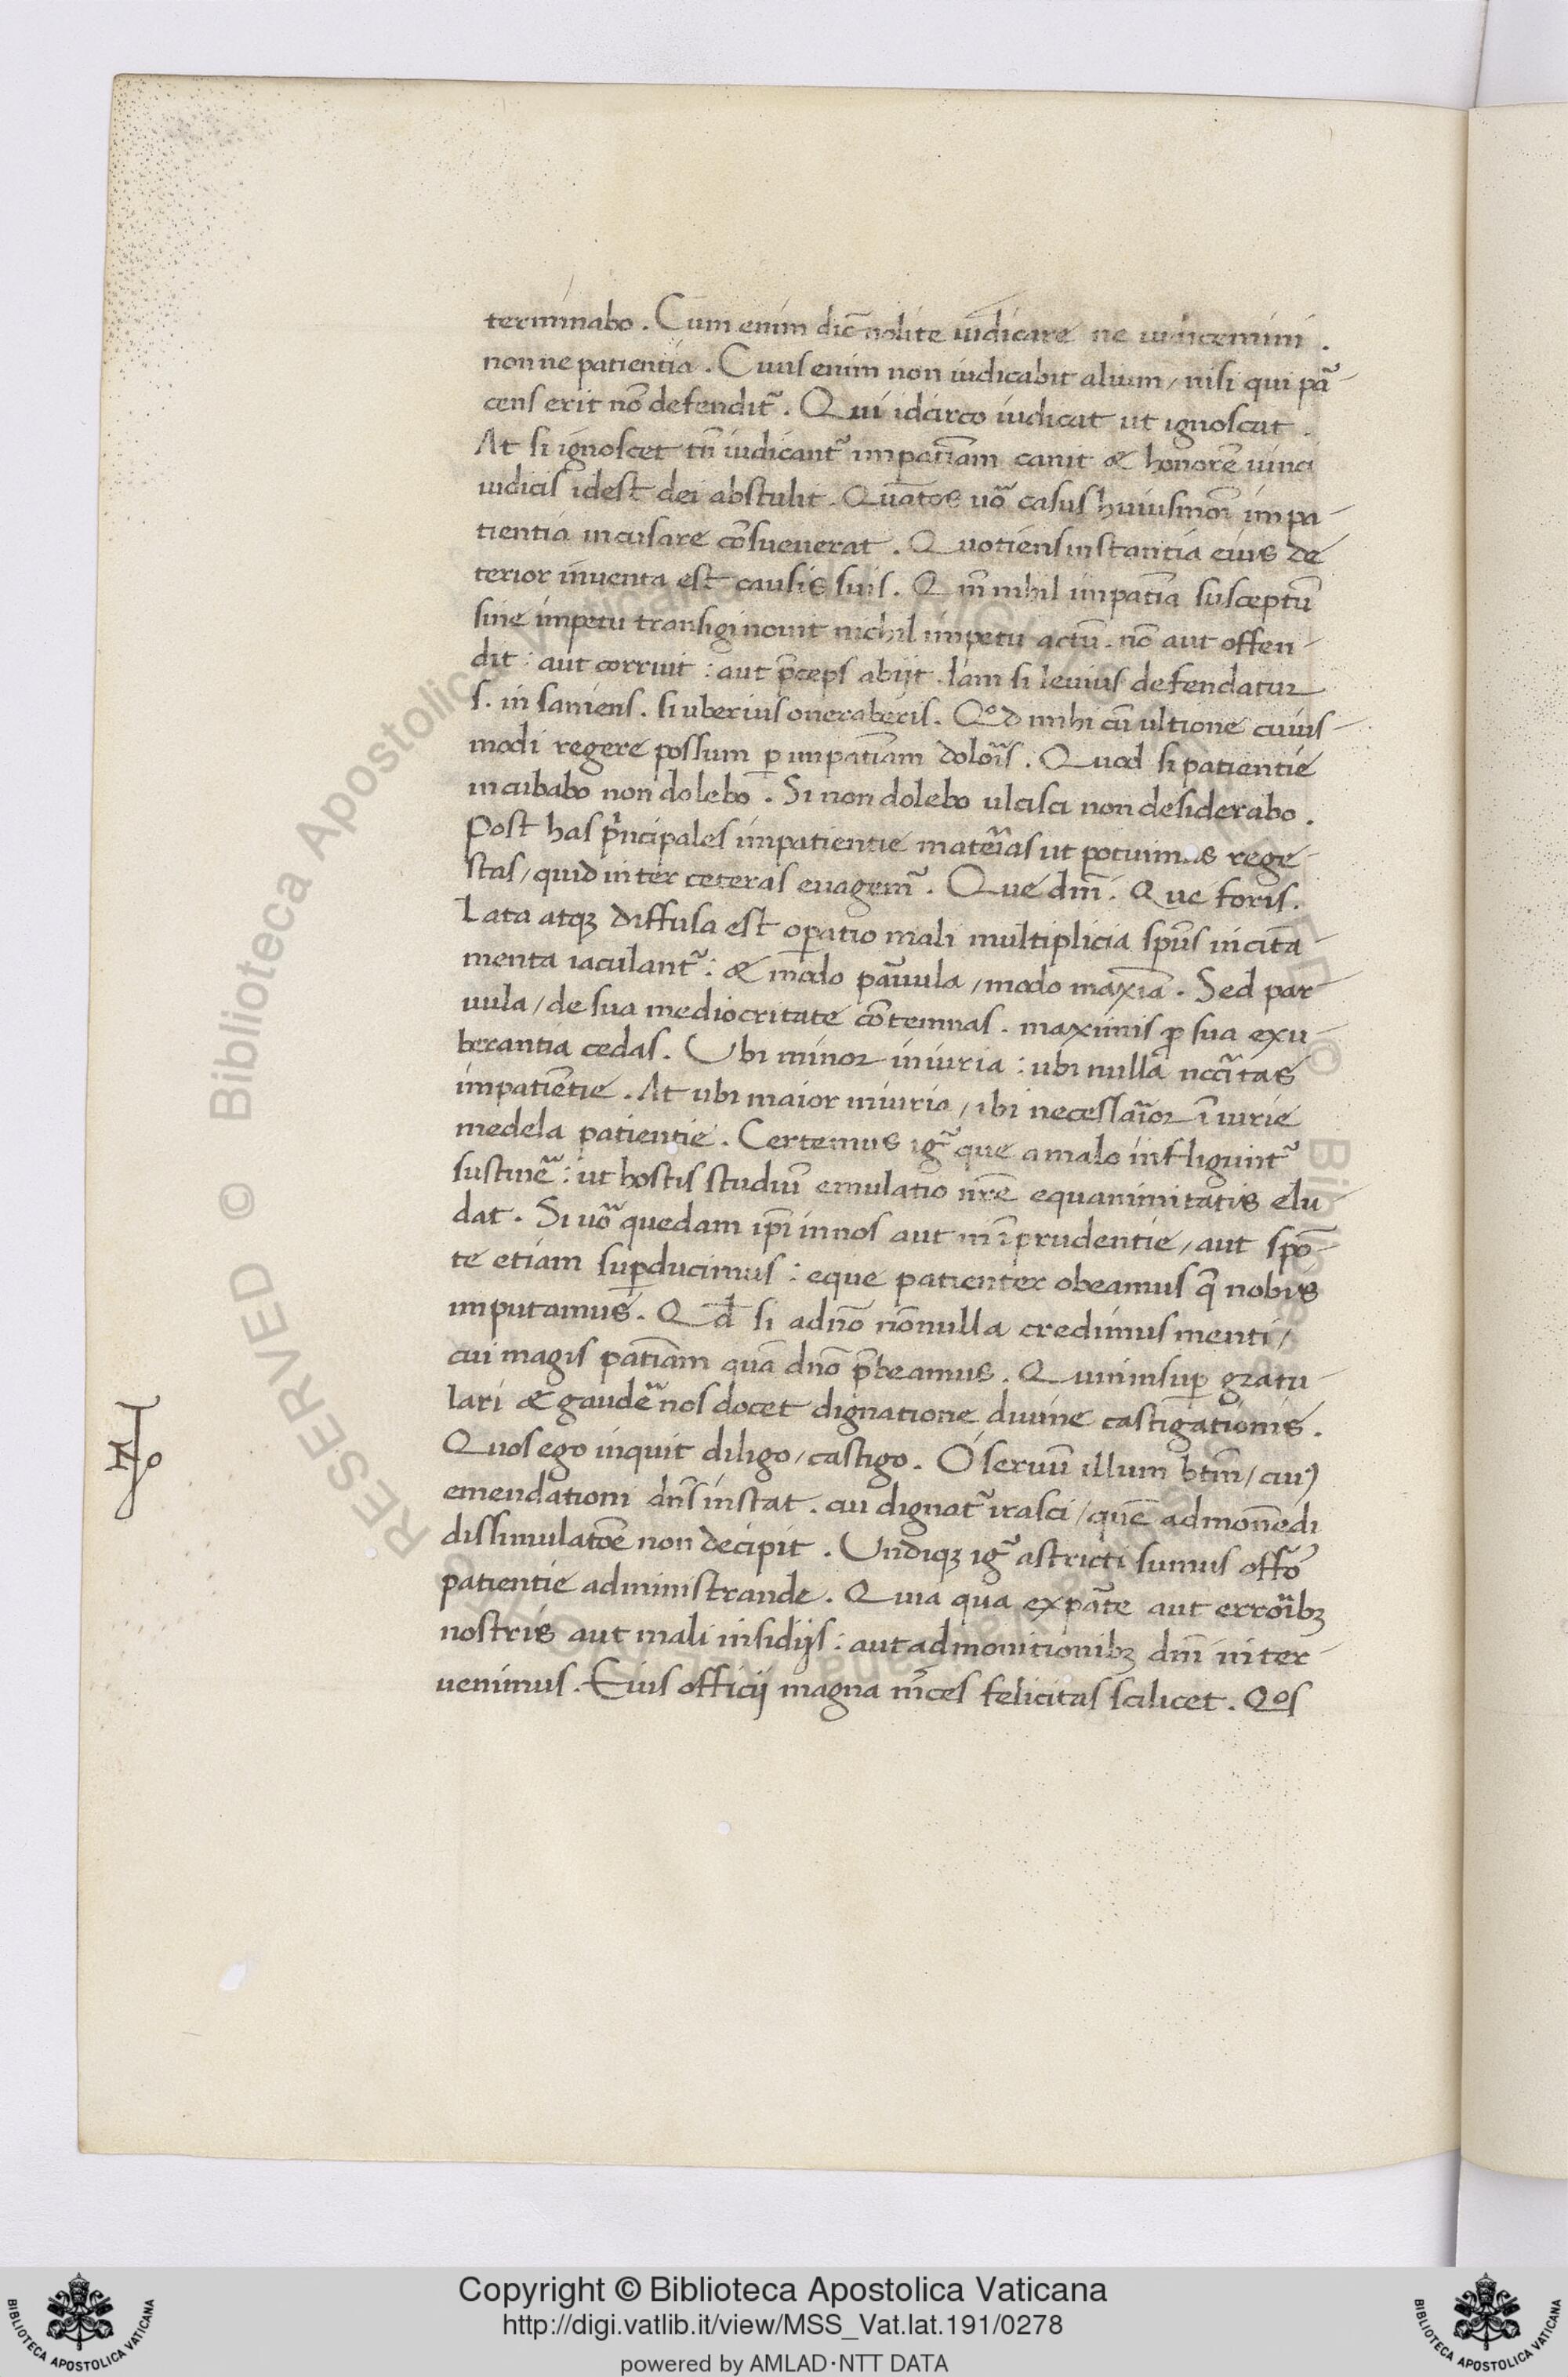 terminabo. Cum enim dic̄ nolite iudicare ne iudicemini.
non ne patientia. Cuius enim non iudicabit alium/ nisi qui pā
cens erit nō defendit᷑. Qui idcirco iudicat ut ignoscat.
At si ignoscet tn̄ iudicant᷑ impatiām cauit & honorē uinci
iudicis idest dei abstulit. Quātos uō casus huiusmōi impa
tientia incusare cōsueuerat. Quotiens instantia eius de
terior inuenta est causis suis. Qm̄ nihil impatīa susceptū
sine impetu transigi nouit nichil impetu actū. nō aut offen
dit: aut corruit: aut p̄ceps abijt. Iam si leuius defendatur
s. in saniens. si uberius oneraberis. Qod mihi cū ultione cuius
modi regere possum ꝑ impatiām dolōis. Quod si patientie
incubabo non dolebo. Si non dolebo ulcisci non desiderabo.
Post has pͥncipales impatientie matēias ut potuimus rege
stas/ quid inter ceteras euagem᷑. Que dm̄. Que foris.
Lata atqꝫ diffusa est oꝑatio mali multiplicia spūs incita
menta iaculant᷑: & modo pāuula/ modo maxīa. Sed par
uula/ de sua mediocritate cōtemnas. maximis ꝓ sua exu
berantia cedas. Ubi minor iniuria: ubi nulla nccītas
impatiētie. At ubi maior iniuria/ ibi necessāior īiurie
medela patientie. Certemus ig᷑ que a malo infligunt᷑
sustinē: ut hostis studiū emulatio nr̄e equanimitatis elu
dat. Si uō quedam ip̄i in nos aut inīprudentie/ aut spō
te etiam suꝑducimus: eque patienter obeamus q̄ nobis
imputamus. Qd̄ si a dnō nōnulla credimus menti/
cui magis patīam quā dnō p̄beamus. Quin insuꝑ gratu
lari & gaudē nos docet dignatione diuine castigationis.
Quos ego inquit diligo/ castigo. O seruū illum btm̄/ cuiꝰ
emendationi dn̄s instat. cui dignat᷑ irasci/ quē admonēdi
dissimulatōe non decipit. Undiqꝫ ig᷑ astricti sumus offō
patientie administrande. Quia qua ex pāte aut errōibꝫ
nostris aut mali insidijs: aut admonitionibꝫ dn̄i inter
uenimus. Eius officij magna m̄ces felicitas scilicet. Qos
© Biblioteca Apostolica Vaticana
RESERVED
Copyright © Biblioteca Apostolica Vaticana
http://digi.vatlib.it/view/MSS_Vat.lat.191/0278
powered by AMLAD·NTT DATA
BIBLIOTECA APOSTOLICA VATICANA
BIBLIOTECA APOSTOLICA VATICANA